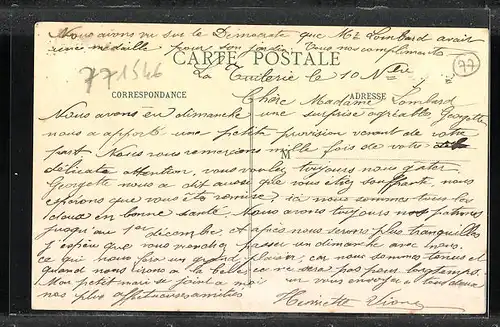 Nous avons vu sur le Démocrate que Mr Lombard avait
médaille pour son jardin. Tous nos compliments
CARTE POSTALE
77
771546
La Tuilerie le 10 Nbre
CORRESPONDANCE
ADRESSE
Chère Madame Lombard
Nous avons eu dimanche une surprise agréable Georgette
nous a apporté une petite provision venant de votre
part Nous vous remercions mille fois de votre
M
délicate attention, vous voulez toujours nous gâter.
Georgette nous a dit aussi que vous étiez souffrante, nous
espérons que vous êtes remise, ici nous sommes tous les
deux en bonne santé. Nous avons toujours nos
jusqu'au 1er décembre et après nous serons plus tranquilles
J'espère que vous viendrez passer un dimanche avec nous.
ce qui nous fera un grand plaisir, car nous sommes tenus et
quand nous irons à la ce ne sera pas pour longtemps.
Mon petit mari se joint à moi pour vous envoyer à tous deux
nos plus affectueuses amitiés
Henriette